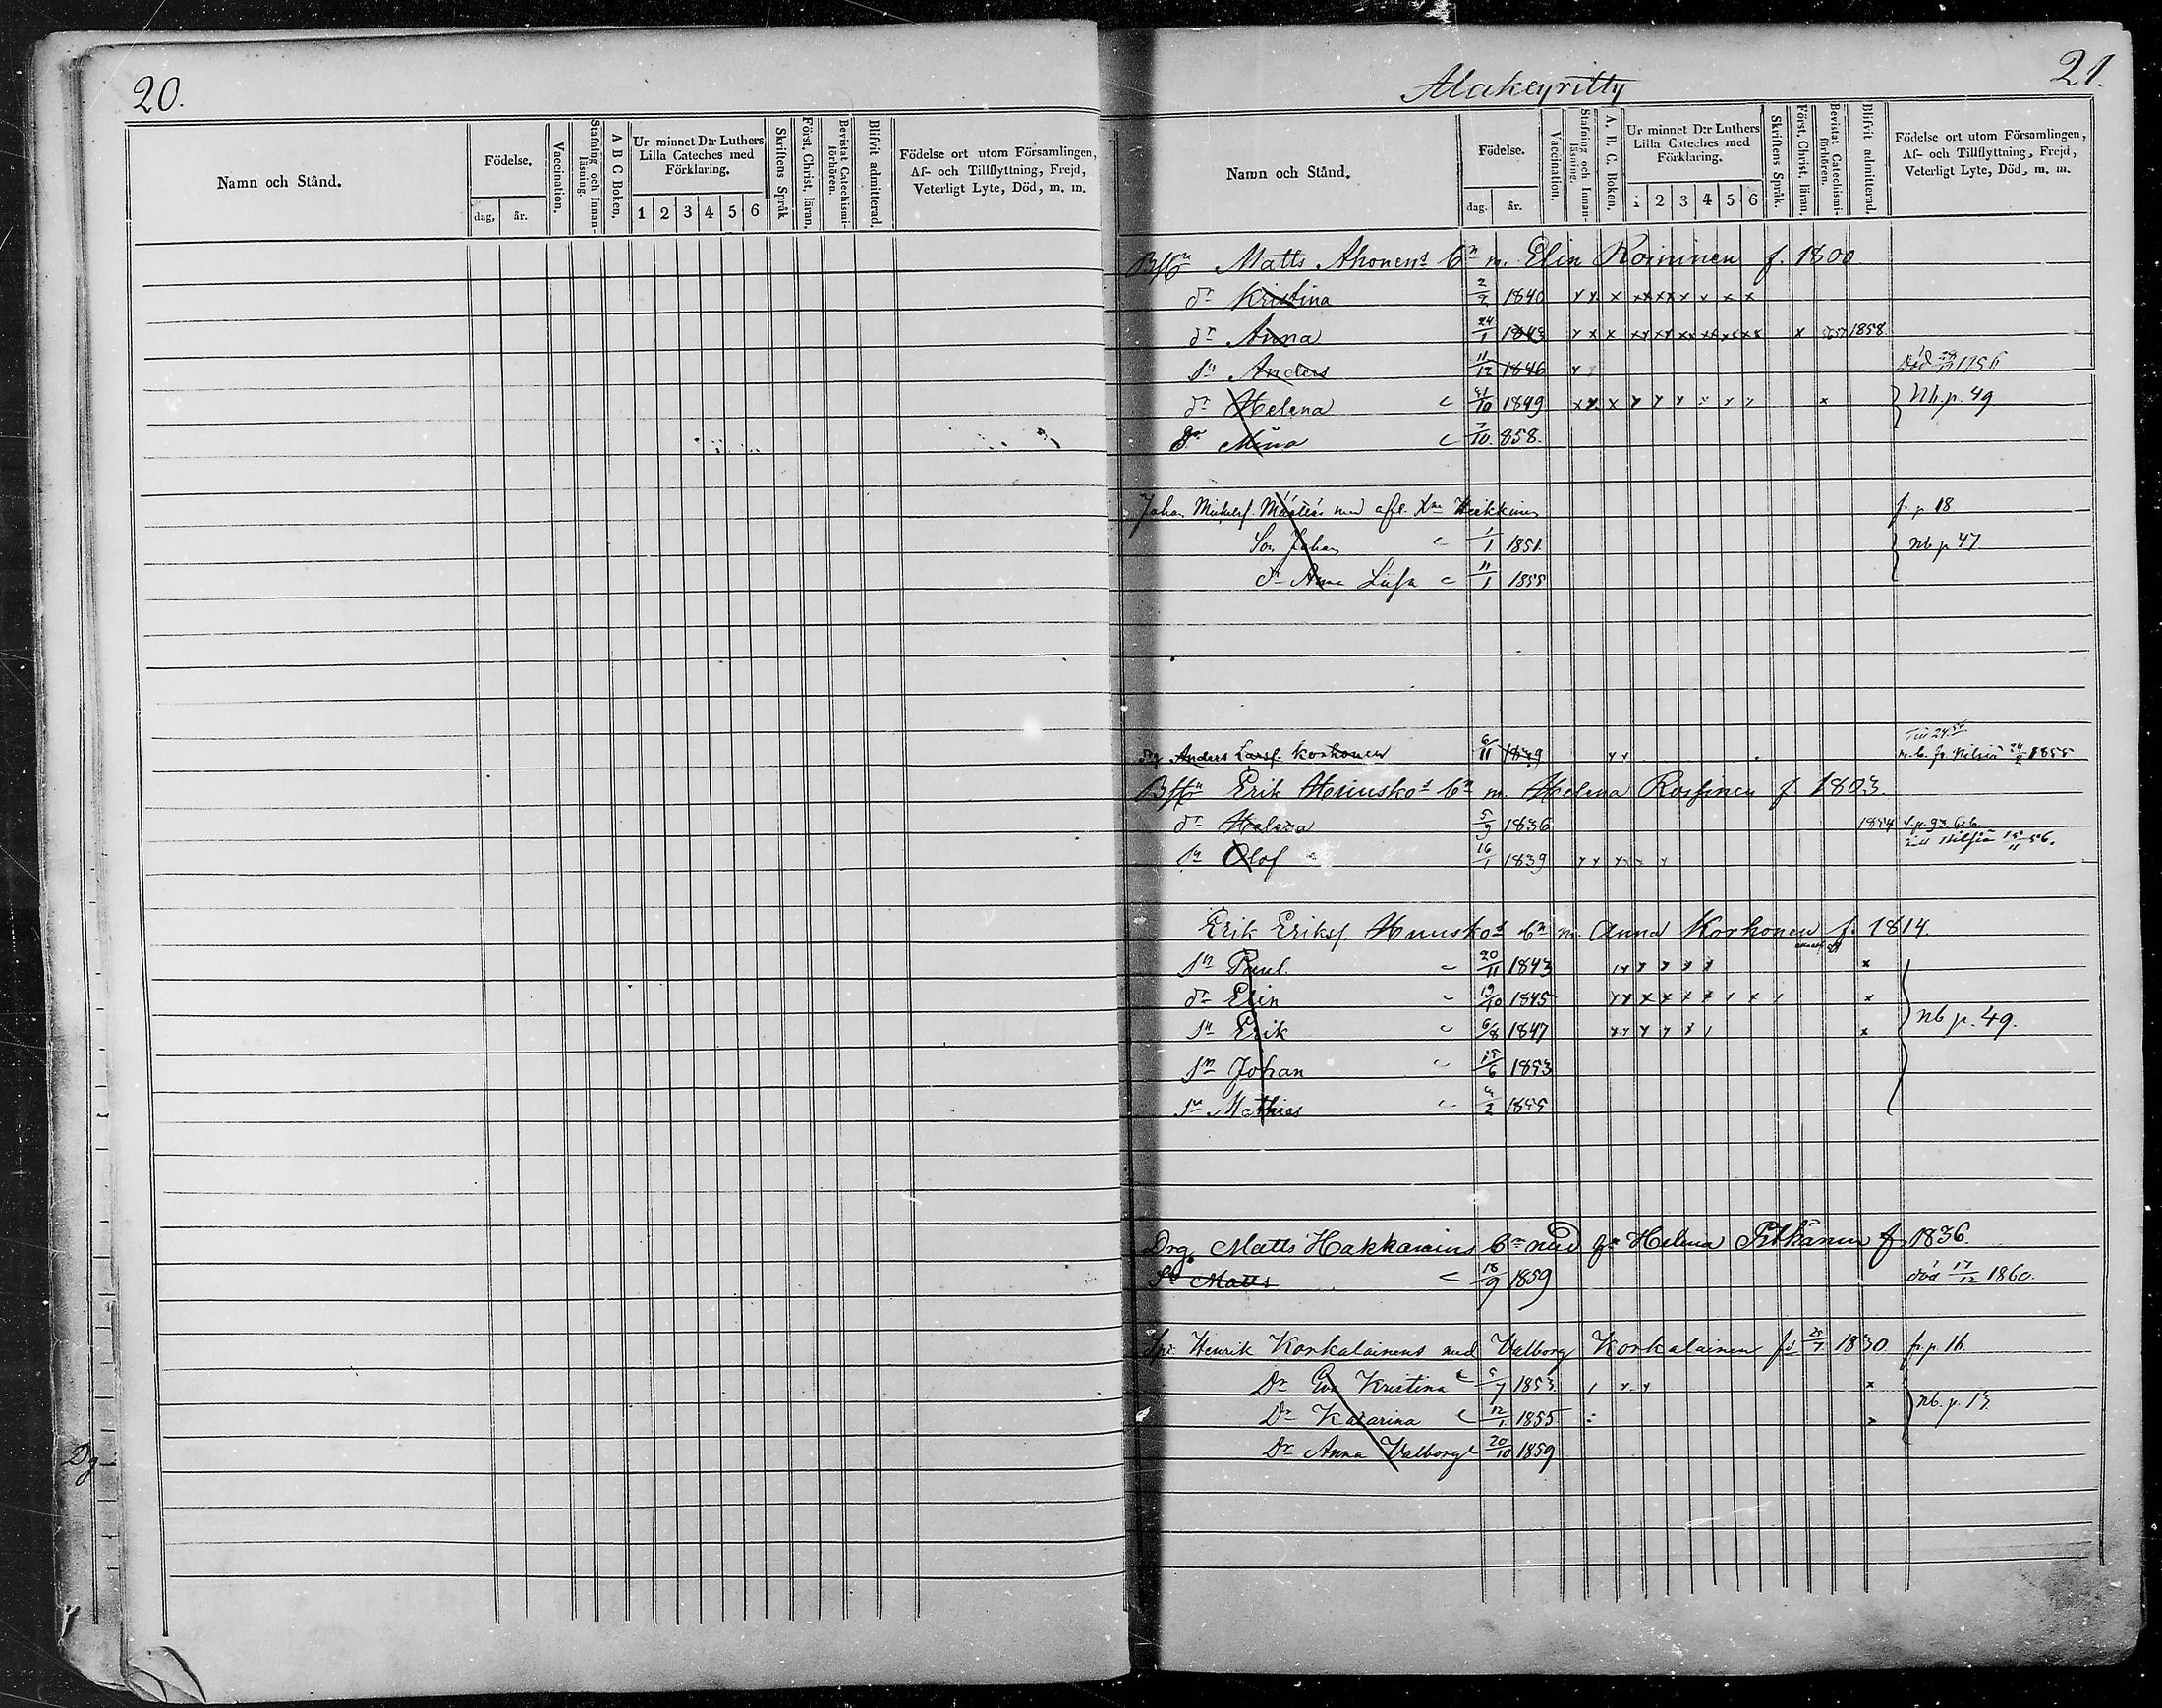 20.
Namn och Stånd.
Födelse.
dag, år.
Vaccination.
Stafning och Innanläsning.
A B C Boken,
Ur minnet D:r Luthers Lilla Cateches med Förklaring.
1 2 3 4 5 6
Skriftens Språk
Först. Christ. läran.
Bevistat Catechismiförhören.
Blifvit admitterad.
Födelse ort utom Församlingen, Af- och Tillflyttning, Frejd, Veterligt Lyte, Död, m. m.
Alakeyritty
21.
Namn och Stånd.
Födelse.
dag. år.
Vaccination.
Stafning och Innanläsning.
A. B. C. Boken.
Ur minnet D:r Luthers Lilla Cateches med Förklaring.
1 2 3 4 5 6
Skriftens Språk.
Först. Christ. läran.
Bevistat Catechismiförhören.
Blifvit admitterad.
Födelse ort utom Församlingen, Af- och Tillflyttning, Frejd, Veterligt Lyte, Död, m. m.
Matts Ahonens bn m. Elin Roininen f. 1800
dr Kristina 2/2 1840
dr Anna 24/1 1843 1858
Sn Anders 11/12 1846 Död
dr Helena 1849 Nb. p. 49
Dr Mina 7/10 858.
Johan med Heikkinen f. p. 18
Son Johan 1/1 1851. Nb p 47
dr Anna Liisa 11/1 1855
Anders Larsf. Korhonen 6/11 1839 m. b. fr. Nilsiä 24/2 1855
Erik Huusko's bn m. Helena f. 1803.
dr Helena 5/9 1836 1854
till Nilsiä 56.
Sn Olof 16/1 1839
Erik Eriksf. Huusko's bn m. Anna Korhonen f. 1814.
Sn Paul. 20/11 1843
dr Elin 19/10 1845
Sn Erik 6/8 1847 Nb p. 49.
Sn Johan 15/6 1853
Sn Mathias 4/2 1855
Drg. Matts Hakkarains bn med Helena Pitkänen f. 1836.
Sn Matts 18/9 1859 död 17/12 1860.
Henrik Korkalainens med Valborg Korkalainen fd 25/7 1830 fr. p. 16.
Dr Eva Kristina 5/7 1853.
Dr Katarina 12/1 1855 Nb. p. 13
Dr Anna Valborg 20/10 1859
Dg